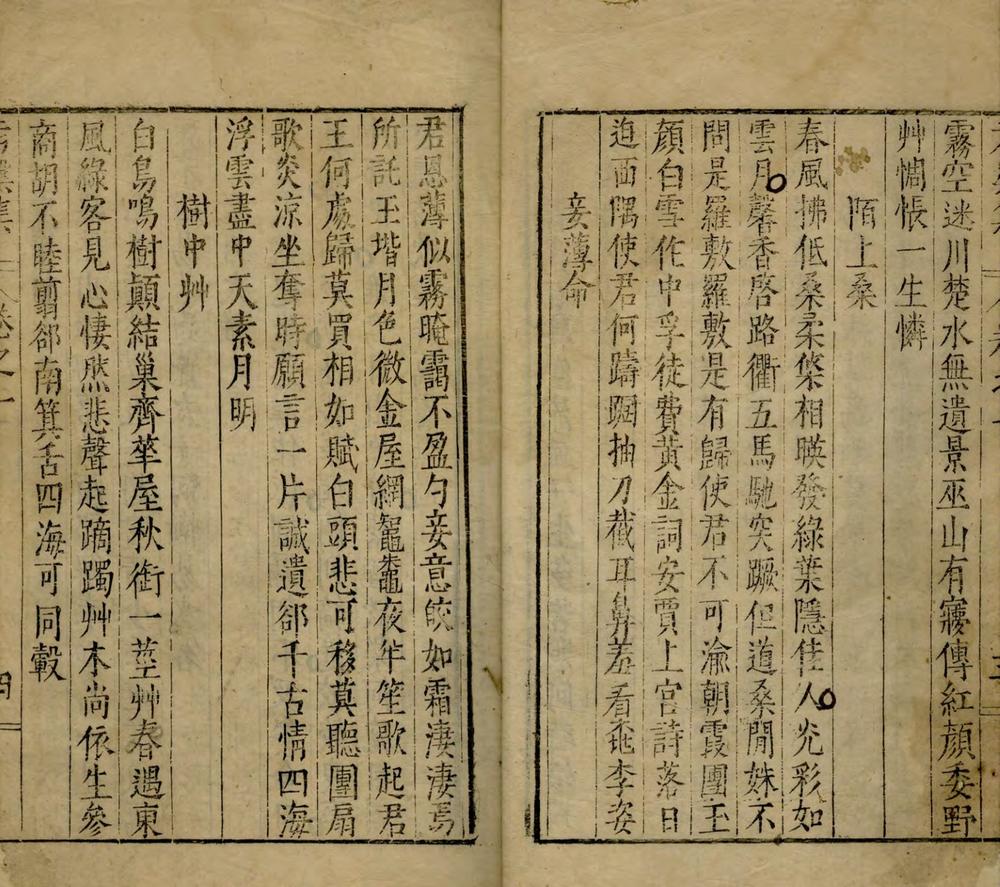 霧空迷川楚水無遺景巫山有寢傳紅顏委野
艸惆悵一生憐
陌上桑
春風拂低桑柔條相暎發綠葉隱佳人光彩如
雲月馨香啓路衢五馬馳突蹶但道桑間姝不
問是羅敷羅敷是有歸使君不可渝朝霞團玉
顏白雪作中孚徒費黃金詞安賈上宮詩落日
迫西隅使君何躊躇抽刀截耳鼻羞看桃李姿
妾薄命
君恩薄似霧晻靄不盈勺妾意皎如霜淒淒焉
所託玉堦月色微金屋網鼅鼄夜半笙歌起君
王何處歸莫買相如賦白頭悲可移莫聽團扇
歌炎涼坐奪時願言一片誠遺郤千古情四海
浮雲盡中天素月明
樹中艸
白鳥鳴樹顛結巢齊華屋秋銜一莖艸春遇東
風綠客見心悽然悲聲起蹢躅艸木尚依生參
商胡不睦翦郤南箕舌四海可同轂